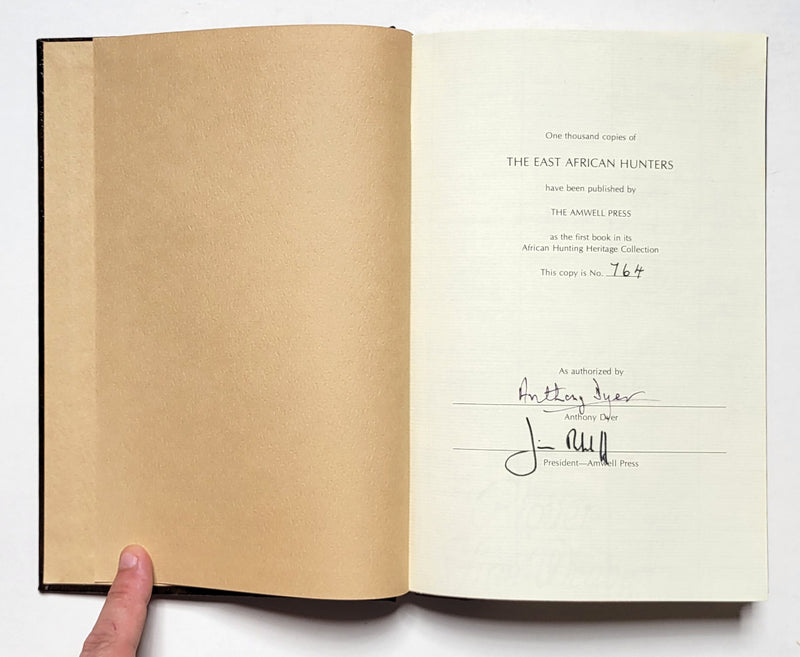 One thousand copies of
THE EAST AFRICAN HUNTERS
have been published by
THE AMWELL PRESS
as the first book in its
African Hunting Heritage Collection
This copy is No. 764
As authorized by
Anthony Dyer
Anthony Dyer
Jim
President—Amwell Press